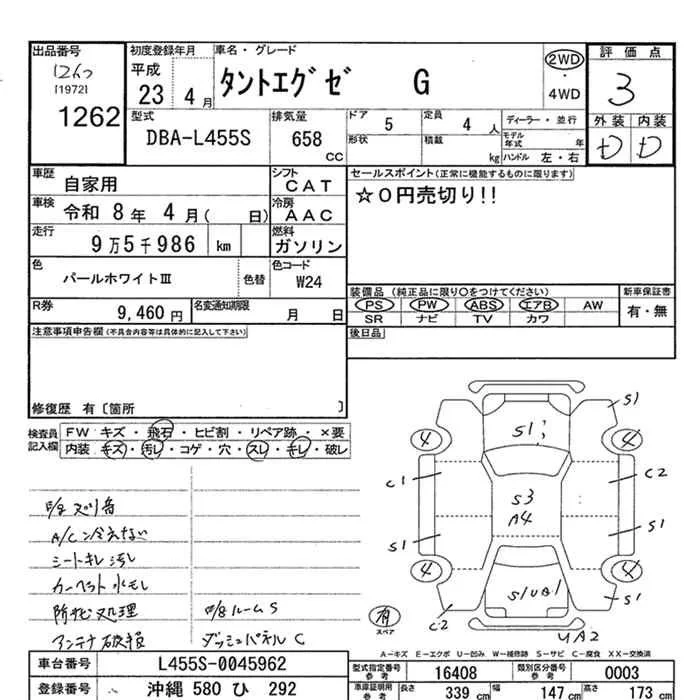 出品番号 初度登録年月 車名・グレード 評価点
12ムつ
[1972]
1262
平成 23 4月 タントエグゼ G 2WD・4WD 3
型式 排気量 ドア 5 定員 4 人 ディーラー・並行 外装 内装
DBA-L455S 658 CC 形状 積載 kg モデル年式 年 ハンドル 左・右 D D
車歴 自家用 シフト CAT セールスポイント(正常に機能するものに限ります)
車検 令和 8年 4月( 日) 冷房 AAC ☆0円売切り!!
走行 9万5千986 km 燃料 ガソリン
色 パールホワイトⅢ 色替 色コード W24
装備品 (純正品に限り○をつけてください) 新車保証書
PS PW ABS エアB AW 有・無
SR ナビ TV カワ
R券 9,460円 名変通知期限 月 日
後日品
注意事項申告欄(不具合内容等は具体的に記入して下さい)
修復歴 有 [箇所 ]
検査員記入欄 FW キズ・飛石・ヒビ割・リペア跡・×要
内装・キズ・汚レ・コゲ・穴・スレ・キレ・破レ
S1
S1
4 4
C1 C2
S3
A4
S1 S1
4 4
S1UB1
C2 S1
UA2
有
スペア
E/g ズリ音
A/C 冷えない
シートキレ 汚レ
カーペット 水モレ
防サビ処理 E/gルームS
アンテナ破損 ダッシュパネル C
A-キズ E-エクボ U-凹み W-補修跡 S-サビ C-腐食 XX-交換済
車台番号 L455S-0045962
型式指定番号 参考 16408 類別区分番号 参考 0003
登録番号 沖縄 580 ひ 292
車庫証明用 参考 長さ 339 cm 幅 147 cm 高さ 173 cm